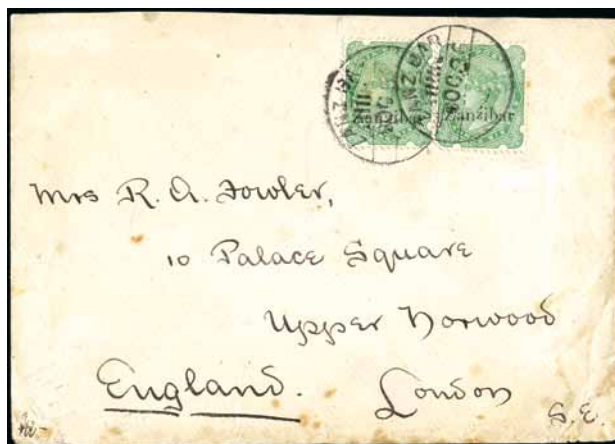 ZANZIBAR
Zanzibar Zanzibar
Mrs R. A. Fowler,
10 Palace Square
Upper Norwood
England. London
S.E.